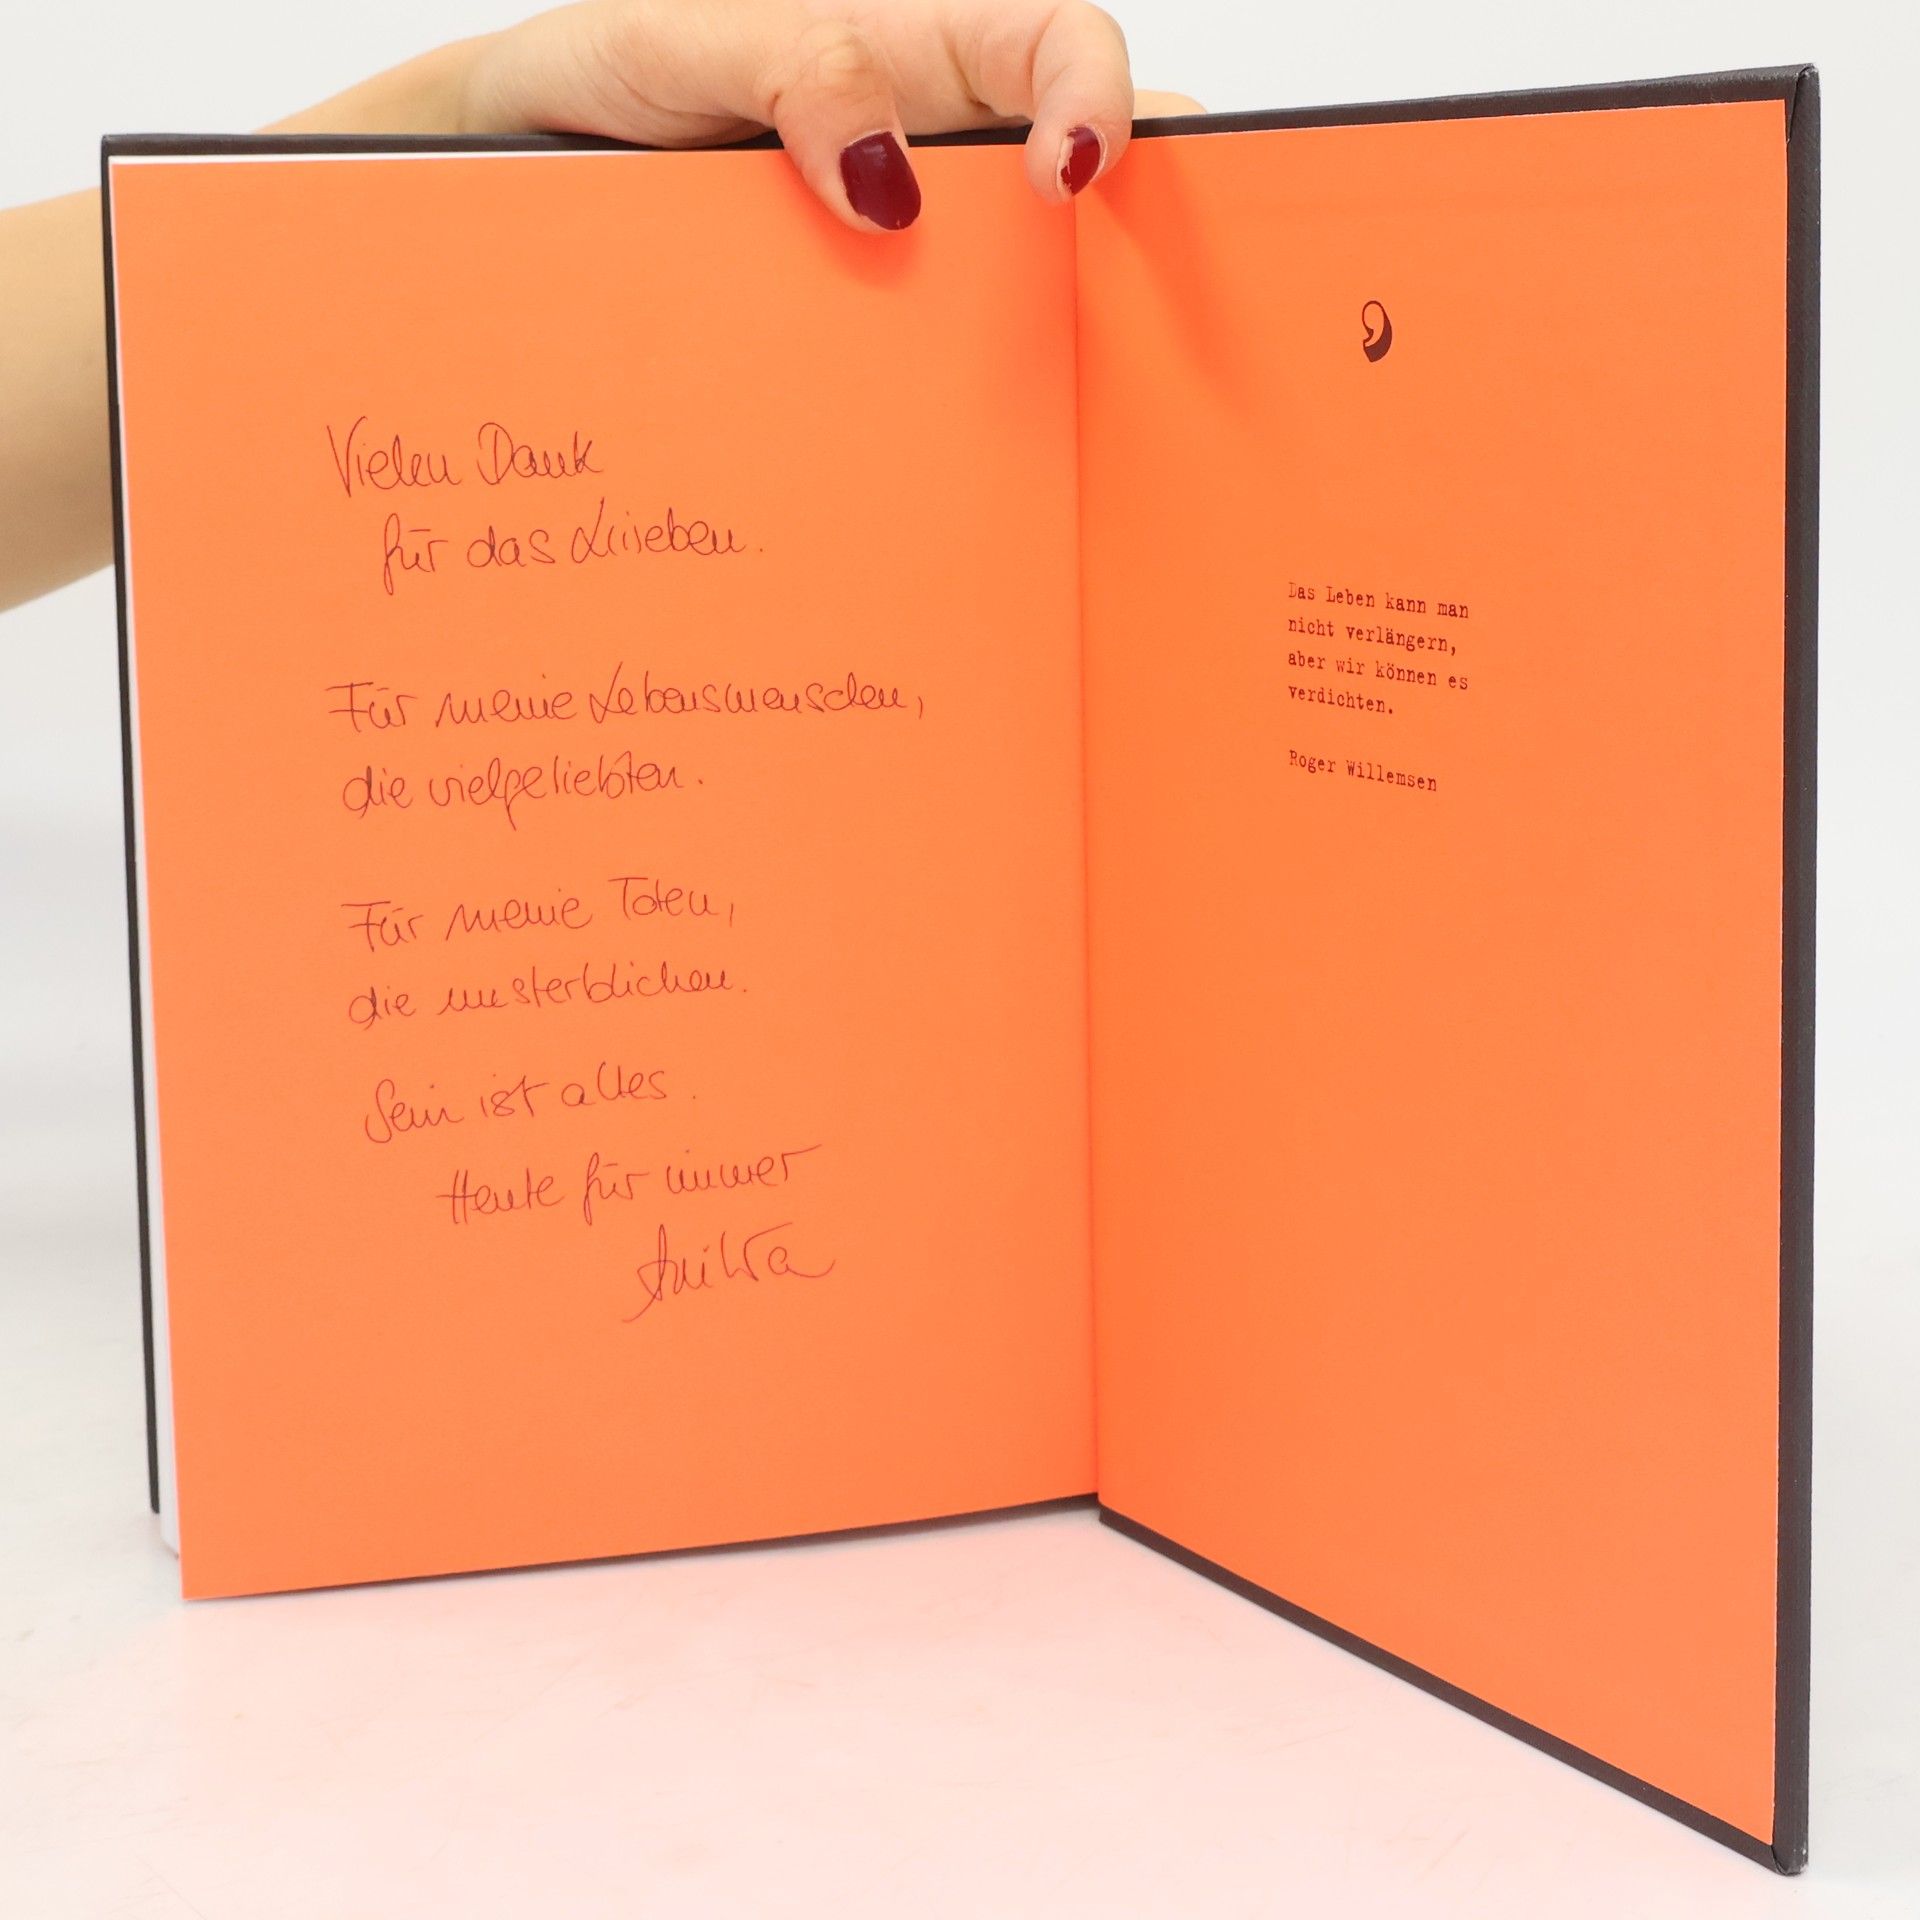 Vielen Dank
für das Lieben.
Für meine Lebensmenschen,
die vielgeliebten.
Für meine Toten,
die unsterblichen.
Sein ist alles.
Heute für immer
,
Das Leben kann man
nicht verlängern,
aber wir können es
verdichten.
Roger Willemsen